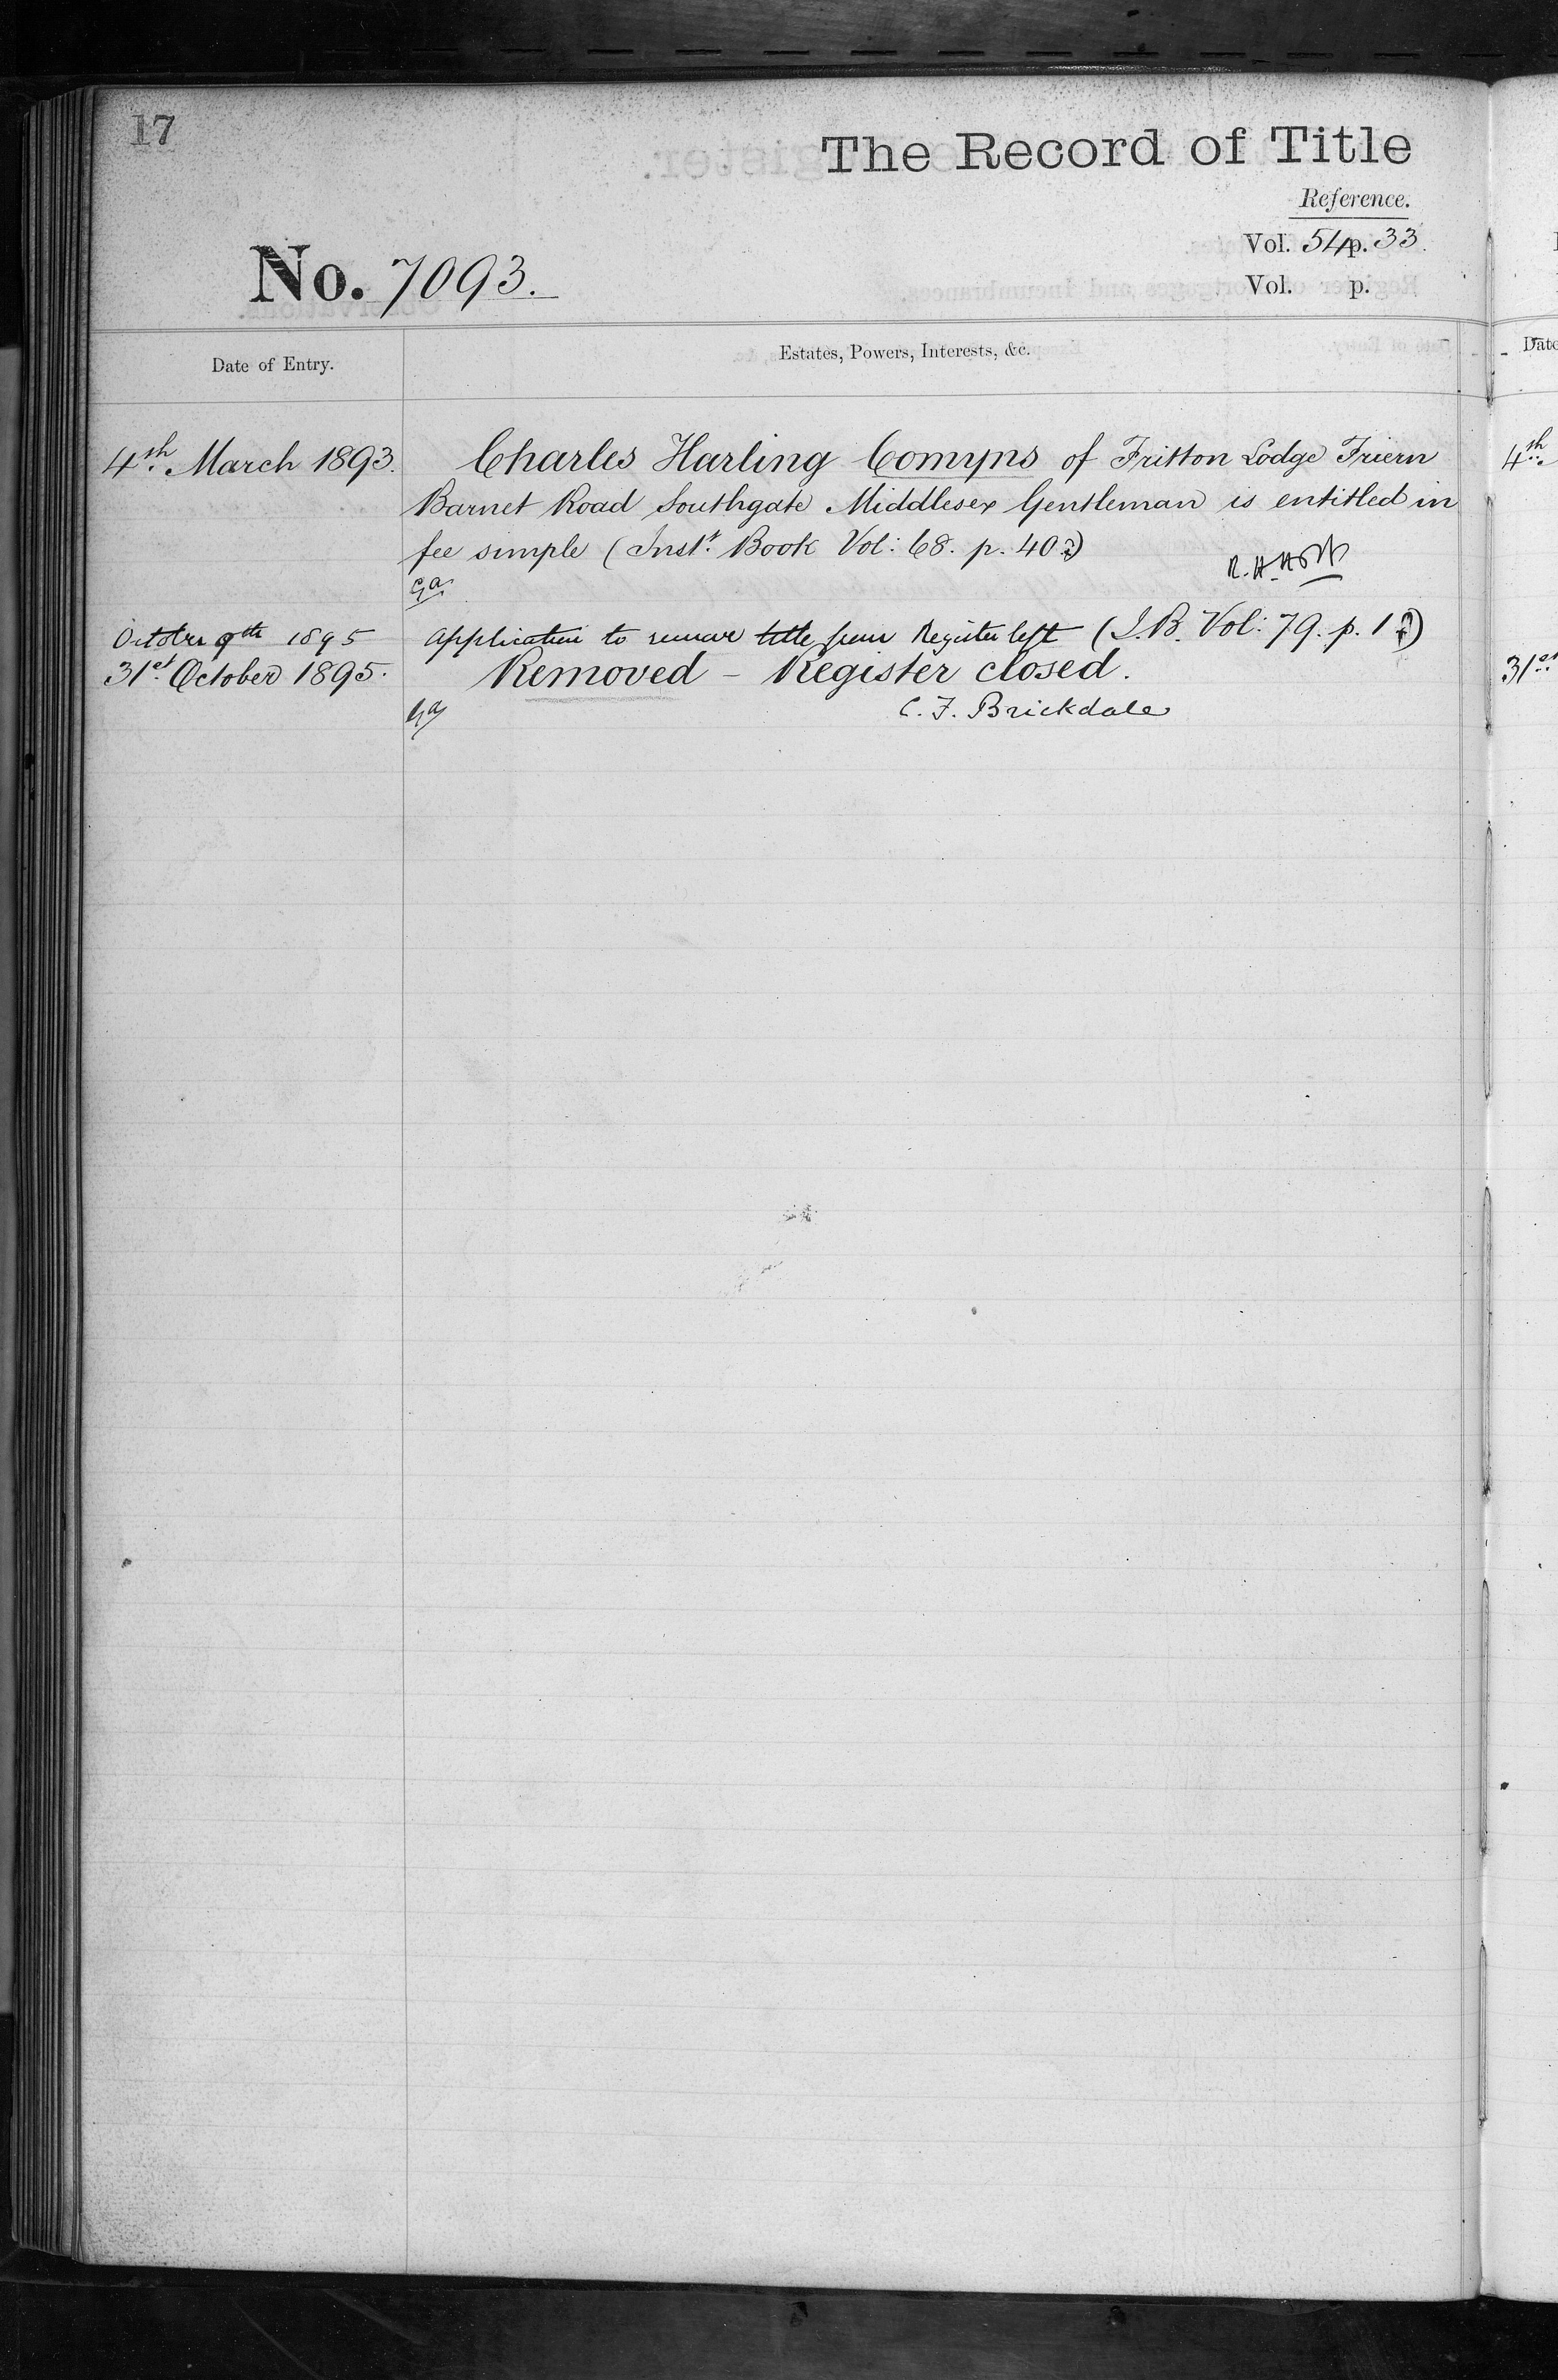 17
The Record of Title
Reference.
Vol. 54 p. 33.
No. 7093.
Vol. p.
Date of Entry.
Estates, Powers, Interests, &c.
Date
4th March 1893.
Charles Harling Comyns of Fritton Lodge Friern
Barnet Road Southgate Middlesex Gentleman is entitled in
fee simple (Inst.t Book Vol: 68. p. 40)
4th
October 9th 1895
Application to remove title from Register left (I.B. Vol: 79. p. 1)
31st October 1895.
Removed – Register closed.
31st
C. F. Brickdale